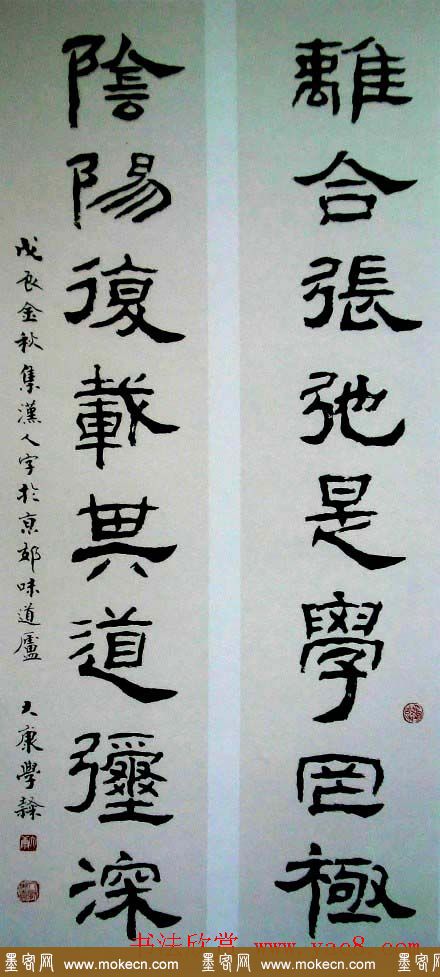 離合張弛是學罔極
陰陽復載其道彌深
戊辰金秋集漢人字於京郊味道廬
大康學隸
书法欣赏 www.yac8.com
墨客网 www.mokecn.com 墨客网 www.mokecn.com 墨客网